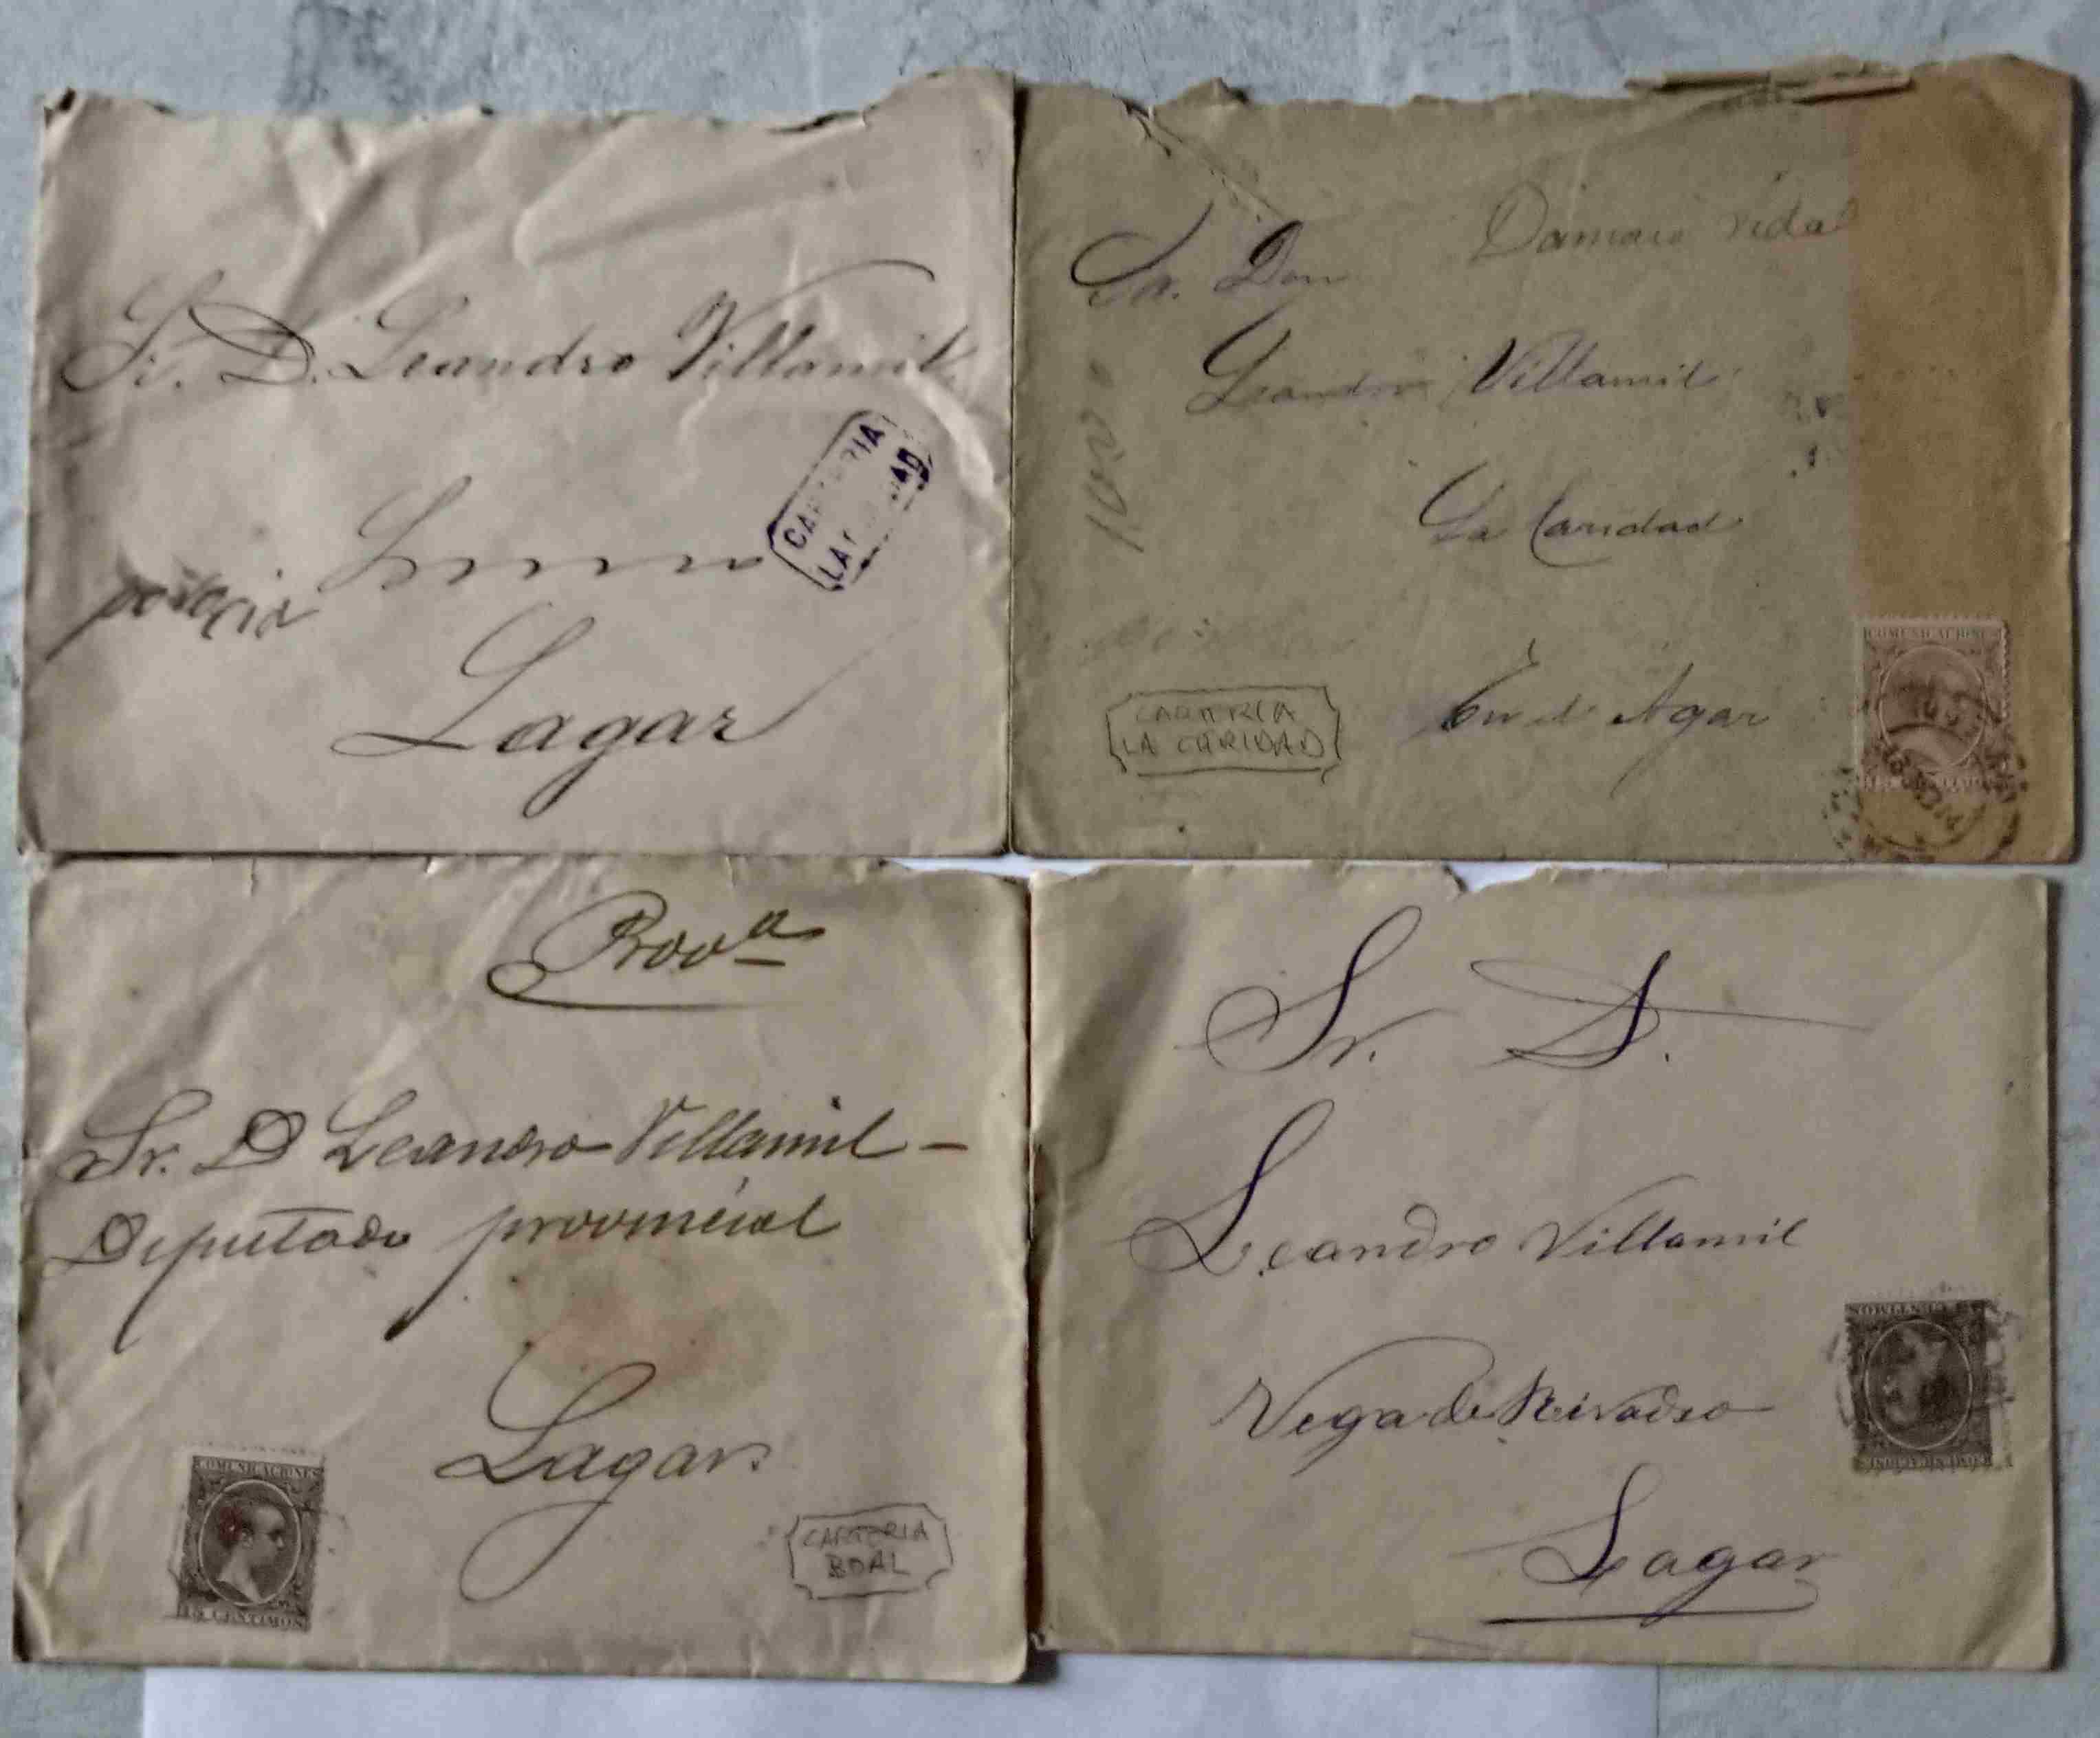 Sr. D. Leandro Villamil
CARTERIA
LA CARIDAD
Lagar
Vidal
Sr. Don
Leandro Villamil
La Caridad
En d Agar
CARTERIA
LA CARIDAD
COMUNICACIONES
Prova
Sr. D Leandro Villamil -
Diputado provincial
Lagar.
COMUNICACIONES
15 CENTIMOS
CARTERIA
BOAL
Sr. D.
Leandro Villamil
Vega de Rivadeo
Lagar
15 CENTIMOS
COMUNICACIONES